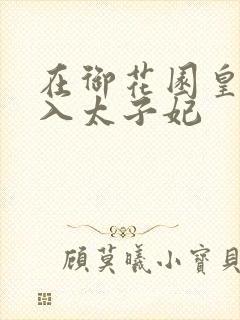 在御花园皇
入太子妃
顾莫曦小寶貝